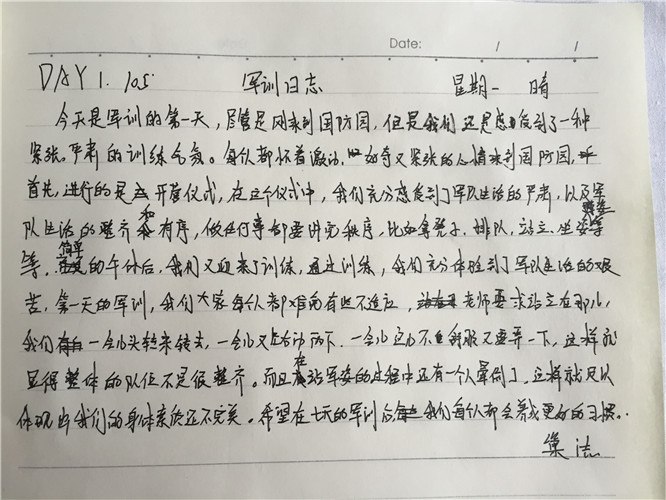 Date: / /
DAY 1. 105 军训日志 星期一 晴
今天是军训的第一天，尽管是刚来到国防园，但是我们还是感受到了一种
紧张、严肃的训练气氛。每人都怀着激动、好奇又紧张的心情来到国防园，
首先，进行的是开营仪式，在这个仪式中，我们充分感受到了军队生活的严肃，以及军
队生活的整齐和有序，做任何事都要讲究秩序，比如拿凳子、排队、站立、坐姿等
等。简单的午休后，我们又迎来了训练，通过训练，我们充分体验到了军队生活的艰
苦。第一天的军训，我们大家每人都难免有些不适应，老师要求站立在那儿，
我们一会儿头转来转去，一会儿又左右动两下，一会儿这儿不舒服又要弄一下，这样就
显得整体的队伍不是很整齐。而且在站军姿的过程中还有一个人晕倒了，这样就足以
体现出我们的身体素质还不完美。希望在七天的军训后，我们每人都会养成更好的习惯。